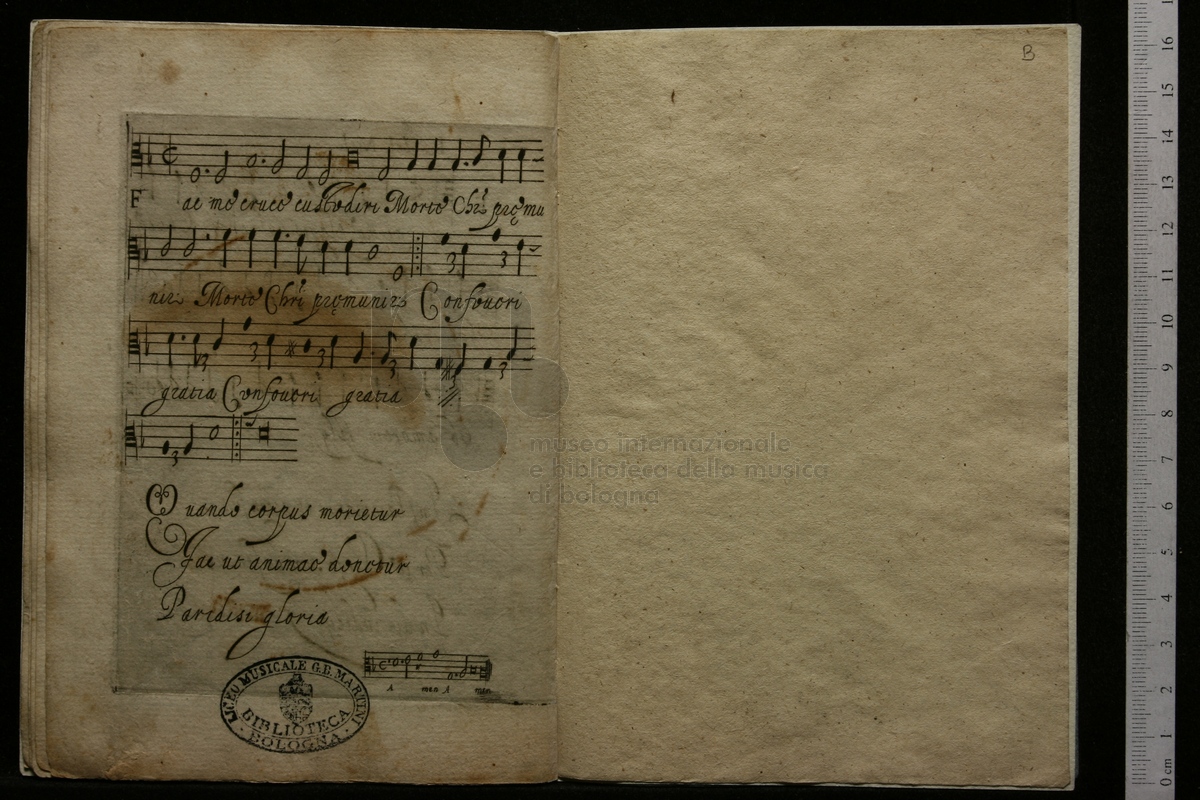 Fac me cruce custodiri Morte Chrĩ pręmu
niri Morte Chrĩ pręmuniri Confoveri
gratia Confoveri gratia
Quando corpus morietur
Fac ut animae donetur
Paridisi gloria
A men A men
LICEO MUSICALE G.B. MARTINI
BIBLIOTECA
BOLOGNA
B
museo internazionale
e biblioteca della musica
di bologna
16
15
14
13
12
11
10
9
8
7
6
5
4
3
2
1
0 cm